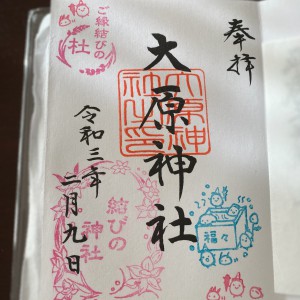 奉拝
大原神社
令和三年
二月九日
ご縁結びの
社
結びの
神社
福々